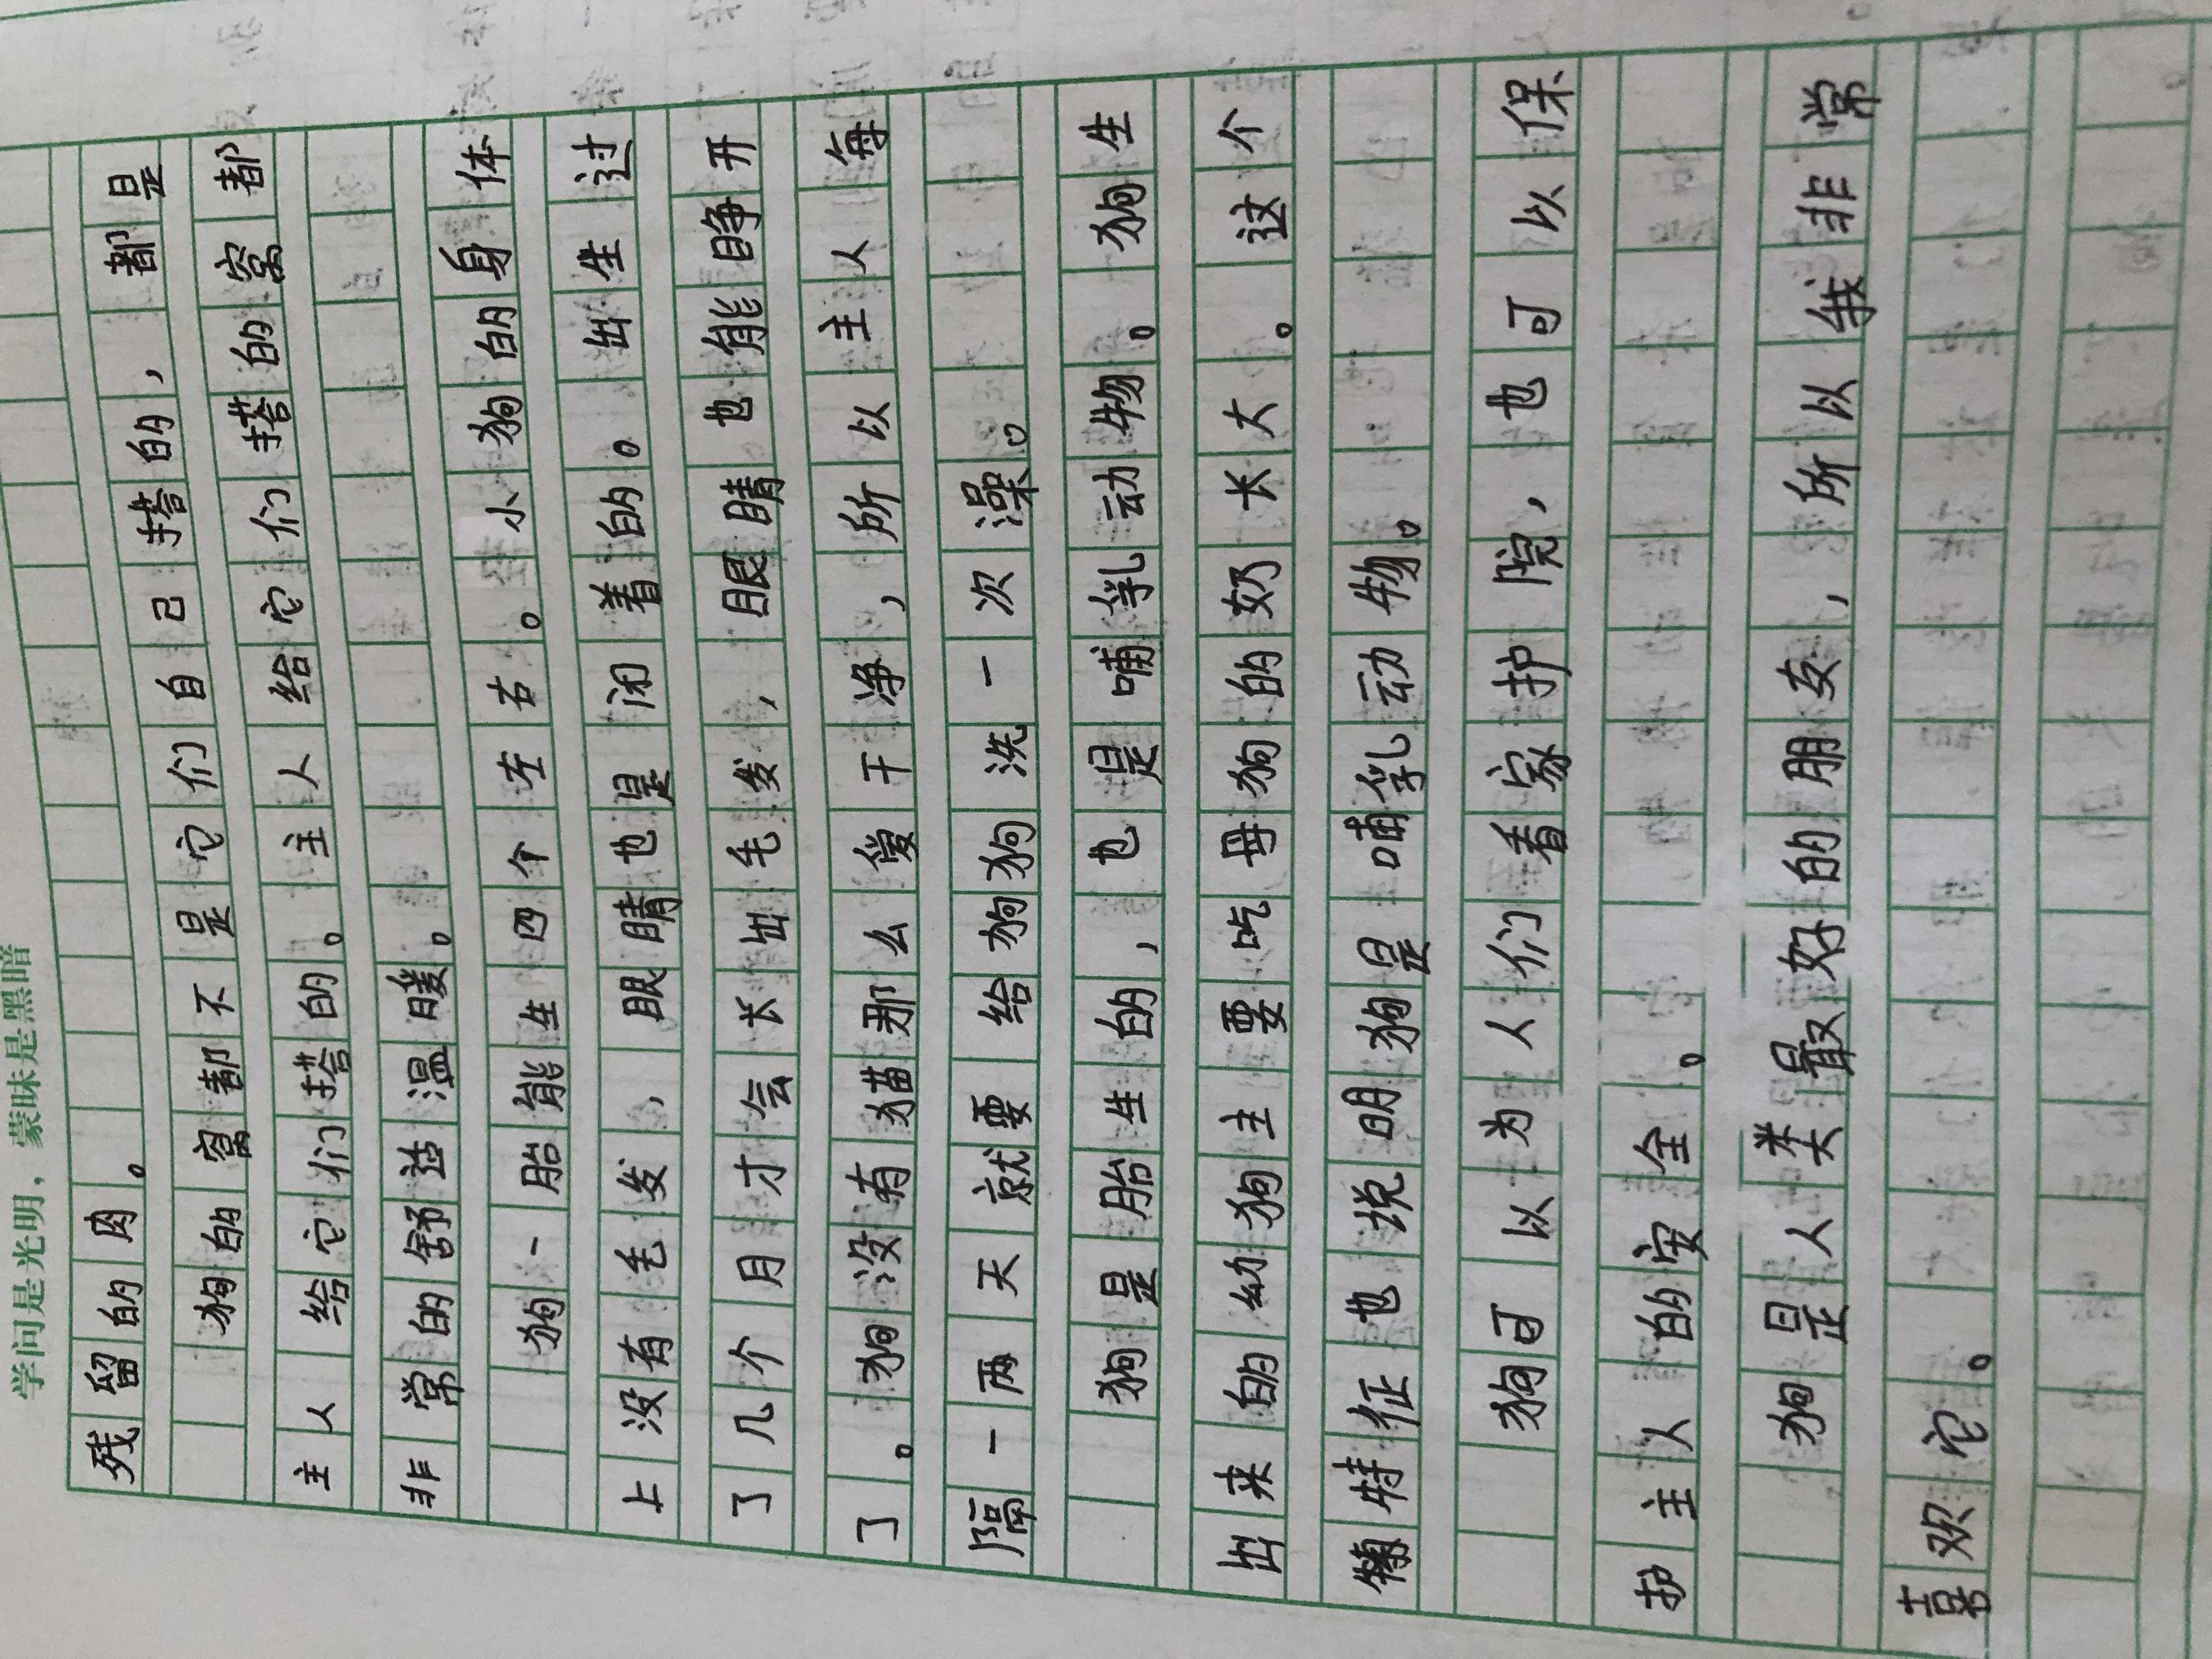 学问是光明，蒙昧是黑暗
残留的肉。
狗的窝都不是它们自己搭的，都是
主人给它们搭的。主人给它们搭的窝都
非常的舒适温暖。
狗一胎能生四个左右。小狗的身体
上没有毛发，眼睛也是闭着的。出生过
了几个月才会长出毛发，眼睛也能睁开
了。狗没有猫那么爱干净，所以主人每
隔一两天就要给狗狗洗一次澡。
狗是胎生的，也是哺乳动物。狗生
出来的幼狗主要吃母狗的奶长大。这个
特征也说明狗是哺乳动物。
狗可以为人们看家护院，也可以保
护主人的安全。
狗是人类最好的朋友，所以我非常
喜欢它。